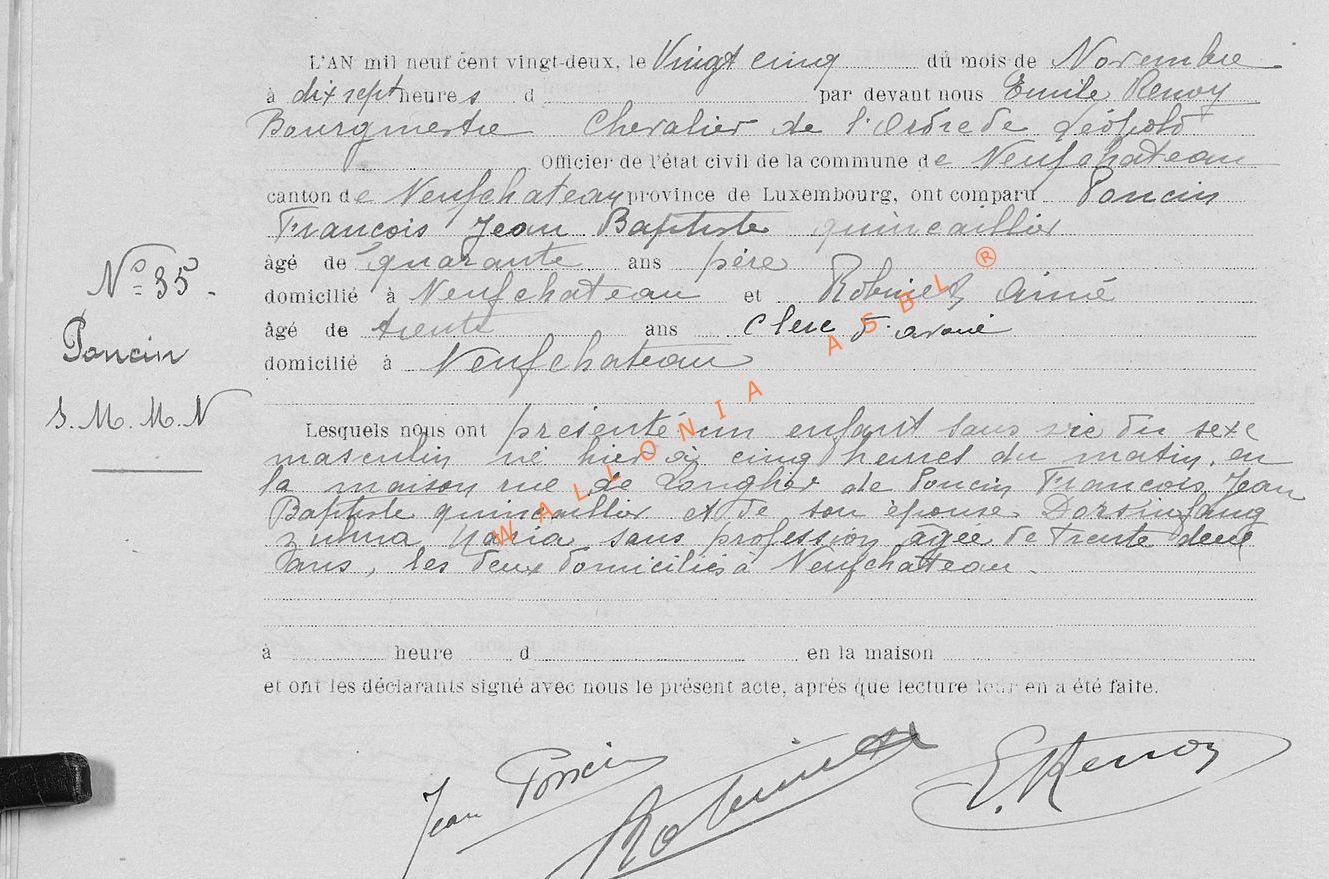 L'AN mil neuf cent vingt-deux, le Vingt cinq du mois de Novembre
à dix sept heures d par devant nous Emile Renoy
Bourgmestre Chevalier de l'Ordre de Léopold
Officier de l'état civil de la commune de Neufchateau
canton de Neufchateau province de Luxembourg, ont comparu Poncin
Francois Jean Baptiste quincaillier
âgé de quarante ans père
N° 35.
domicilié à Neufchateau et Robinet Aimé
âgé de trente ans clerc d'avoué
Poncin
domicilié à Neufchateau
S. M. M. N
Lesquels nous ont présenté un enfant sans vie du sexe
masculin né hier à cinq heures du matin, en
la maison rue de de Poncin Francois Jean
Baptiste quincaillier et de son épouse
Maria sans profession âgée de trente deux
ans, les deux domiciliés à Neufchateau.
à heure d en la maison
et ont les déclarants signé avec nous le présent acte, après que lecture leur en a été faite.
Jean Poncin
Robinet
E. Renoy
WALLONIA ASBL ®